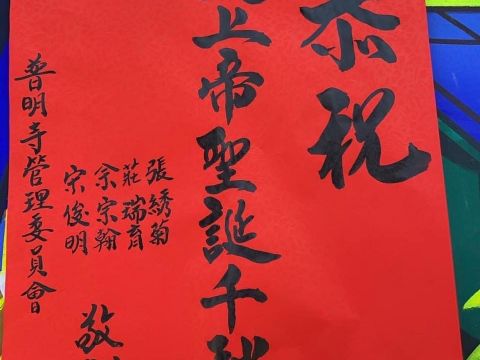 恭祝
上帝聖誕千
張綉菊
莊瑞育
余宗翰
宋俊明
敬
普明寺管理委員會